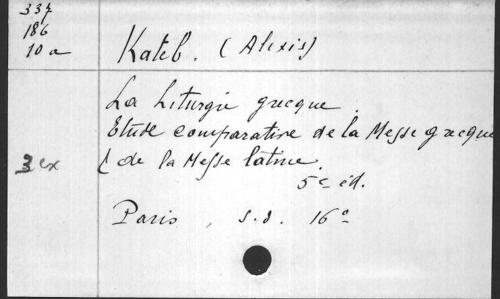 337
186
10 a
Kateb. (Alexis)
La Liturgie grecque.
Etude comparative de la Messe grecque
& de la Messe latine.
3 ex
5e éd.
Paris, s.d. 16°